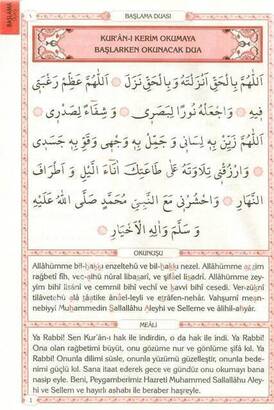 BAŞLAMA
BAŞLAMA DUASI
KUR'ÂN-I KERİM OKUMAYA
BAŞLARKEN OKUNACAK DUA
اَللّٰهُمَّ بِالْحَقِّ اَنْزَلْتَهُ وَ بِالْحَقِّ نَزَلَ ۞ اَللّٰهُمَّ عَظِّمْ رَغْبَتِى
فِيهِ ۞ وَاجْعَلْهُ نُورًا لِبَصَرِى ۞ وَ شِفَاءً لِصَدْرِى ۞
اَللّٰهُمَّ زَيِّنْ بِهِ لِسَانِى وَ جَمِّلْ بِهِ وَجْهِى وَقَوِّ بِهِ جَسَدِى
۞ وَارْزُقْنِى تِلَاوَتَهُ عَلٰى طَاعَتِكَ اٰنَاءَ الَّيْلِ وَ اَطْرَافَ
النَّهَارِ ۞ وَاحْشُرْنِى مَعَ النَّبِىِّ مُحَمَّدٍ صَلَّى اللّٰهُ عَلَيْهِ
وَ سَلَّمَ وَاٰلِهِ الْاَخْيَارِ ۞
OKUNUŞU
Allâhümme bil-hakkı enzeltehû ve bil-hakkı nezel. Allâhümme azzim
rağbetî fîh, vec-alhü nûral libasarî, ve şifâel lisadrî. Allâhümme zey-
yin bihî lisânî ve cemmil bihî vechî ve kavvi bihî cesedî. Ver-zuknî
tilâvetehû alâ tâatike ânâel-leyli ve etrâfen-nehâr. Vahşurnî mean-
nebiyyi Muhammedin Sallallâhu Aleyhi ve Selleme ve âlihil-ahyâr.
MEÂLİ
Ya Rabbi! Sen Kur'ân-ı hak ile indirdin, o da hak ile indi. Ya Rabbi!
Ona olan rağbetimi büyüt, onu gözüme nur ve gönlüme şifâ kıl. Ya
Rabbi! Onunla dilimi süsle, onunla yüzümü güzelleştir, onunla bede-
nimi güçlü kıl. Sana itaat ederek gece ve gündüz onu okumayı bana
nasip eyle. Beni, Peygamberimiz Hazreti Muhammed Sallallâhu Aley-
hi ve Sellem ve hayırlı ashabı ile beraber haşreyle.
1